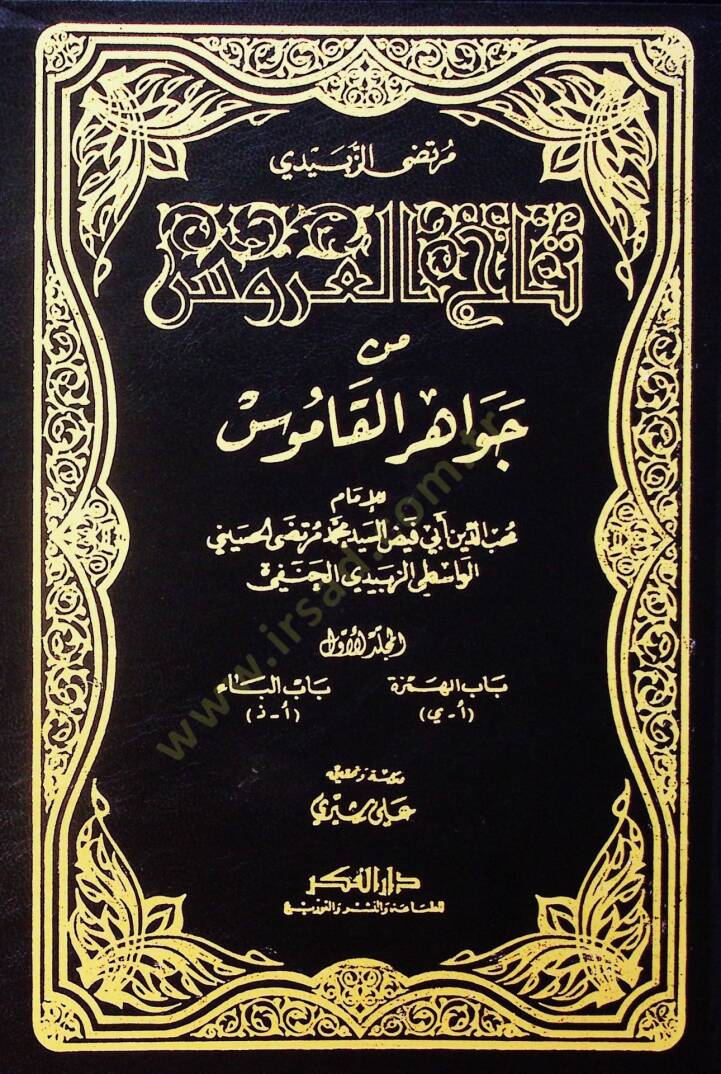 مرتضى الزَّبيدي
تاج العروس
من
جَوَاهِر القَامُوسْ
للإمَام
محبّ الدّين أبي فيض السيد محمّد مرتضى الحسيني
الواسطي الزبيدي الحنفي
المجلّد الأوّل
بَابُ الهمزة
بَابُ البَاء
(أ - ي)
(أ - ذ)
دراسة وتحقيق
علي شيري
دار الفكر
للطبَاعَة وَالنشْر وَالتوزيع
www.irsad.com.tr